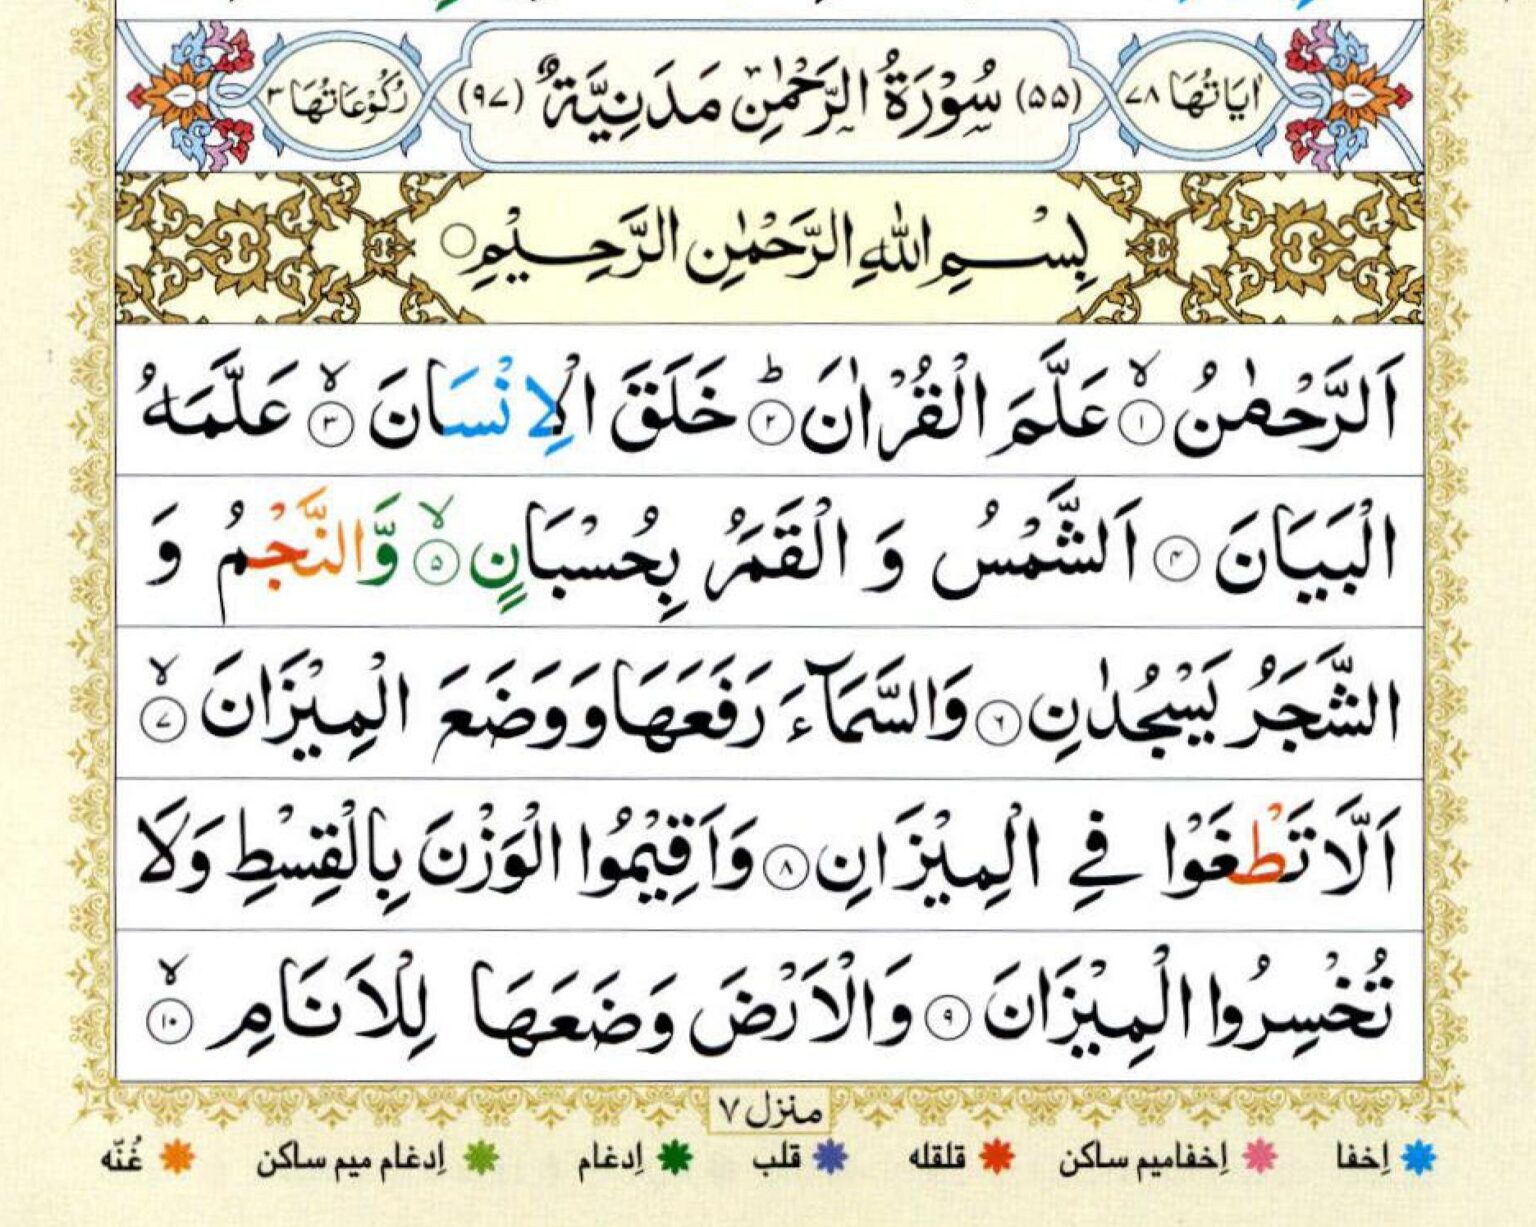 اٰيَاتُهَا ٧٨ (٥٥) سُوْرَةُ الرَّحْمٰنِ مَدَنِيَّةٌ (٩٧) رُكُوْعَاتُهَا ٣
بِسْمِ اللّٰهِ الرَّحْمٰنِ الرَّحِيْمِ
اَلرَّحْمٰنُ ۙ‏﴿۱﴾ عَلَّمَ الْقُرْاٰنَ ؕ‏﴿۲﴾ خَلَقَ الْاِنْسَانَ ۙ‏﴿۳﴾ عَلَّمَهُ
الْبَيَانَ ﴿۴﴾ اَلشَّمْسُ وَ الْقَمَرُ بِحُسْبَانٍ ۙ‏﴿۵﴾ وَّالنَّجْمُ وَ
الشَّجَرُ يَسْجُدٰنِ ﴿۶﴾ وَالسَّمَآءَ رَفَعَهَا وَوَضَعَ الْمِيْزَانَ ۙ‏﴿۷﴾
اَلَّا تَطْغَوْا فِي الْمِيْزَانِ ﴿۸﴾ وَاَقِيْمُوا الْوَزْنَ بِالْقِسْطِ وَلَا
تُخْسِرُوا الْمِيْزَانَ ﴿۹﴾ وَالْاَرْضَ وَضَعَهَا لِلْاَنَامِ ۙ‏﴿۱۰﴾
منزل ٧
اِخفا اِخفامیم ساکن قلقله قلب اِدغام اِدغام میم ساکن غُنّه